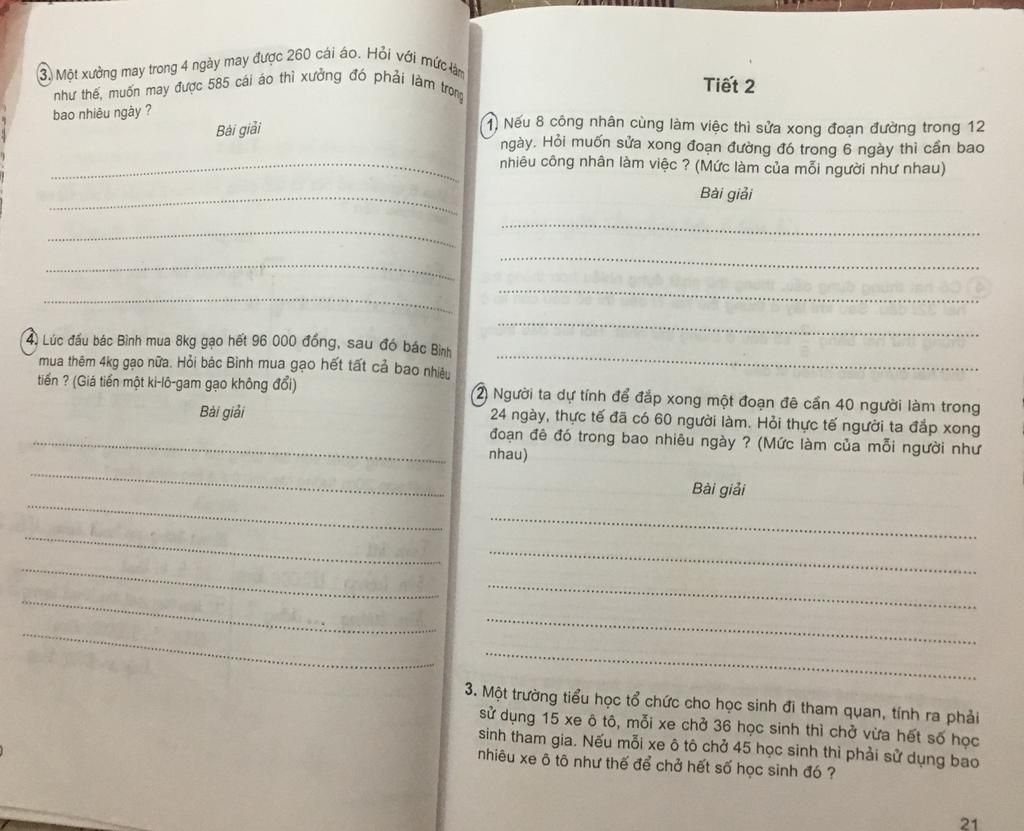 3. Một xưởng may trong 4 ngày may được 260 cái áo. Hỏi với mức làm
như thế, muốn may được 585 cái áo thì xưởng đó phải làm trong
bao nhiêu ngày ?
Bài giải
4. Lúc đầu bác Bình mua 8kg gạo hết 96 000 đồng, sau đó bác Bình
mua thêm 4kg gạo nữa. Hỏi bác Bình mua gạo hết tất cả bao nhiêu
tiền ? (Giá tiền một ki-lô-gam gạo không đổi)
Bài giải
Tiết 2
1. Nếu 8 công nhân cùng làm việc thì sửa xong đoạn đường trong 12
ngày. Hỏi muốn sửa xong đoạn đường đó trong 6 ngày thì cần bao
nhiêu công nhân làm việc ? (Mức làm của mỗi người như nhau)
Bài giải
2. Người ta dự tính để đắp xong một đoạn đê cần 40 người làm trong
24 ngày, thực tế đã có 60 người làm. Hỏi thực tế người ta đắp xong
đoạn đê đó trong bao nhiêu ngày ? (Mức làm của mỗi người như
nhau)
Bài giải
3. Một trường tiểu học tổ chức cho học sinh đi tham quan, tính ra phải
sử dụng 15 xe ô tô, mỗi xe chở 36 học sinh thì chở vừa hết số học
sinh tham gia. Nếu mỗi xe ô tô chở 45 học sinh thì phải sử dụng bao
nhiêu xe ô tô như thế để chở hết số học sinh đó ?
21